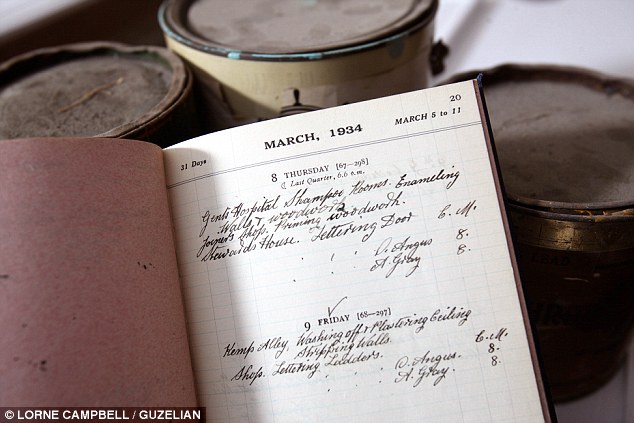 20
MARCH, 1934
31 Days
MARCH 5 to 11
8 THURSDAY [67-298]
☾ Last Quarter, 6.6 a.m.
Gents Hospital Shampoo Rooms. Enameling
Walls & woodwork
Joiners Shop. Priming woodwork.
Stewards House. Lettering Door C. M.
" " D. Angus 8.
" " A. Gray 8.
9 FRIDAY [68-297]
Kemps Alley. Washing off & Plastering Ceiling
Stripping Walls. C. M.
Shop. Lettering Ladders. D. Angus. 8.
" " A. Gray. 8.
© LORNE CAMPBELL / GUZELIAN